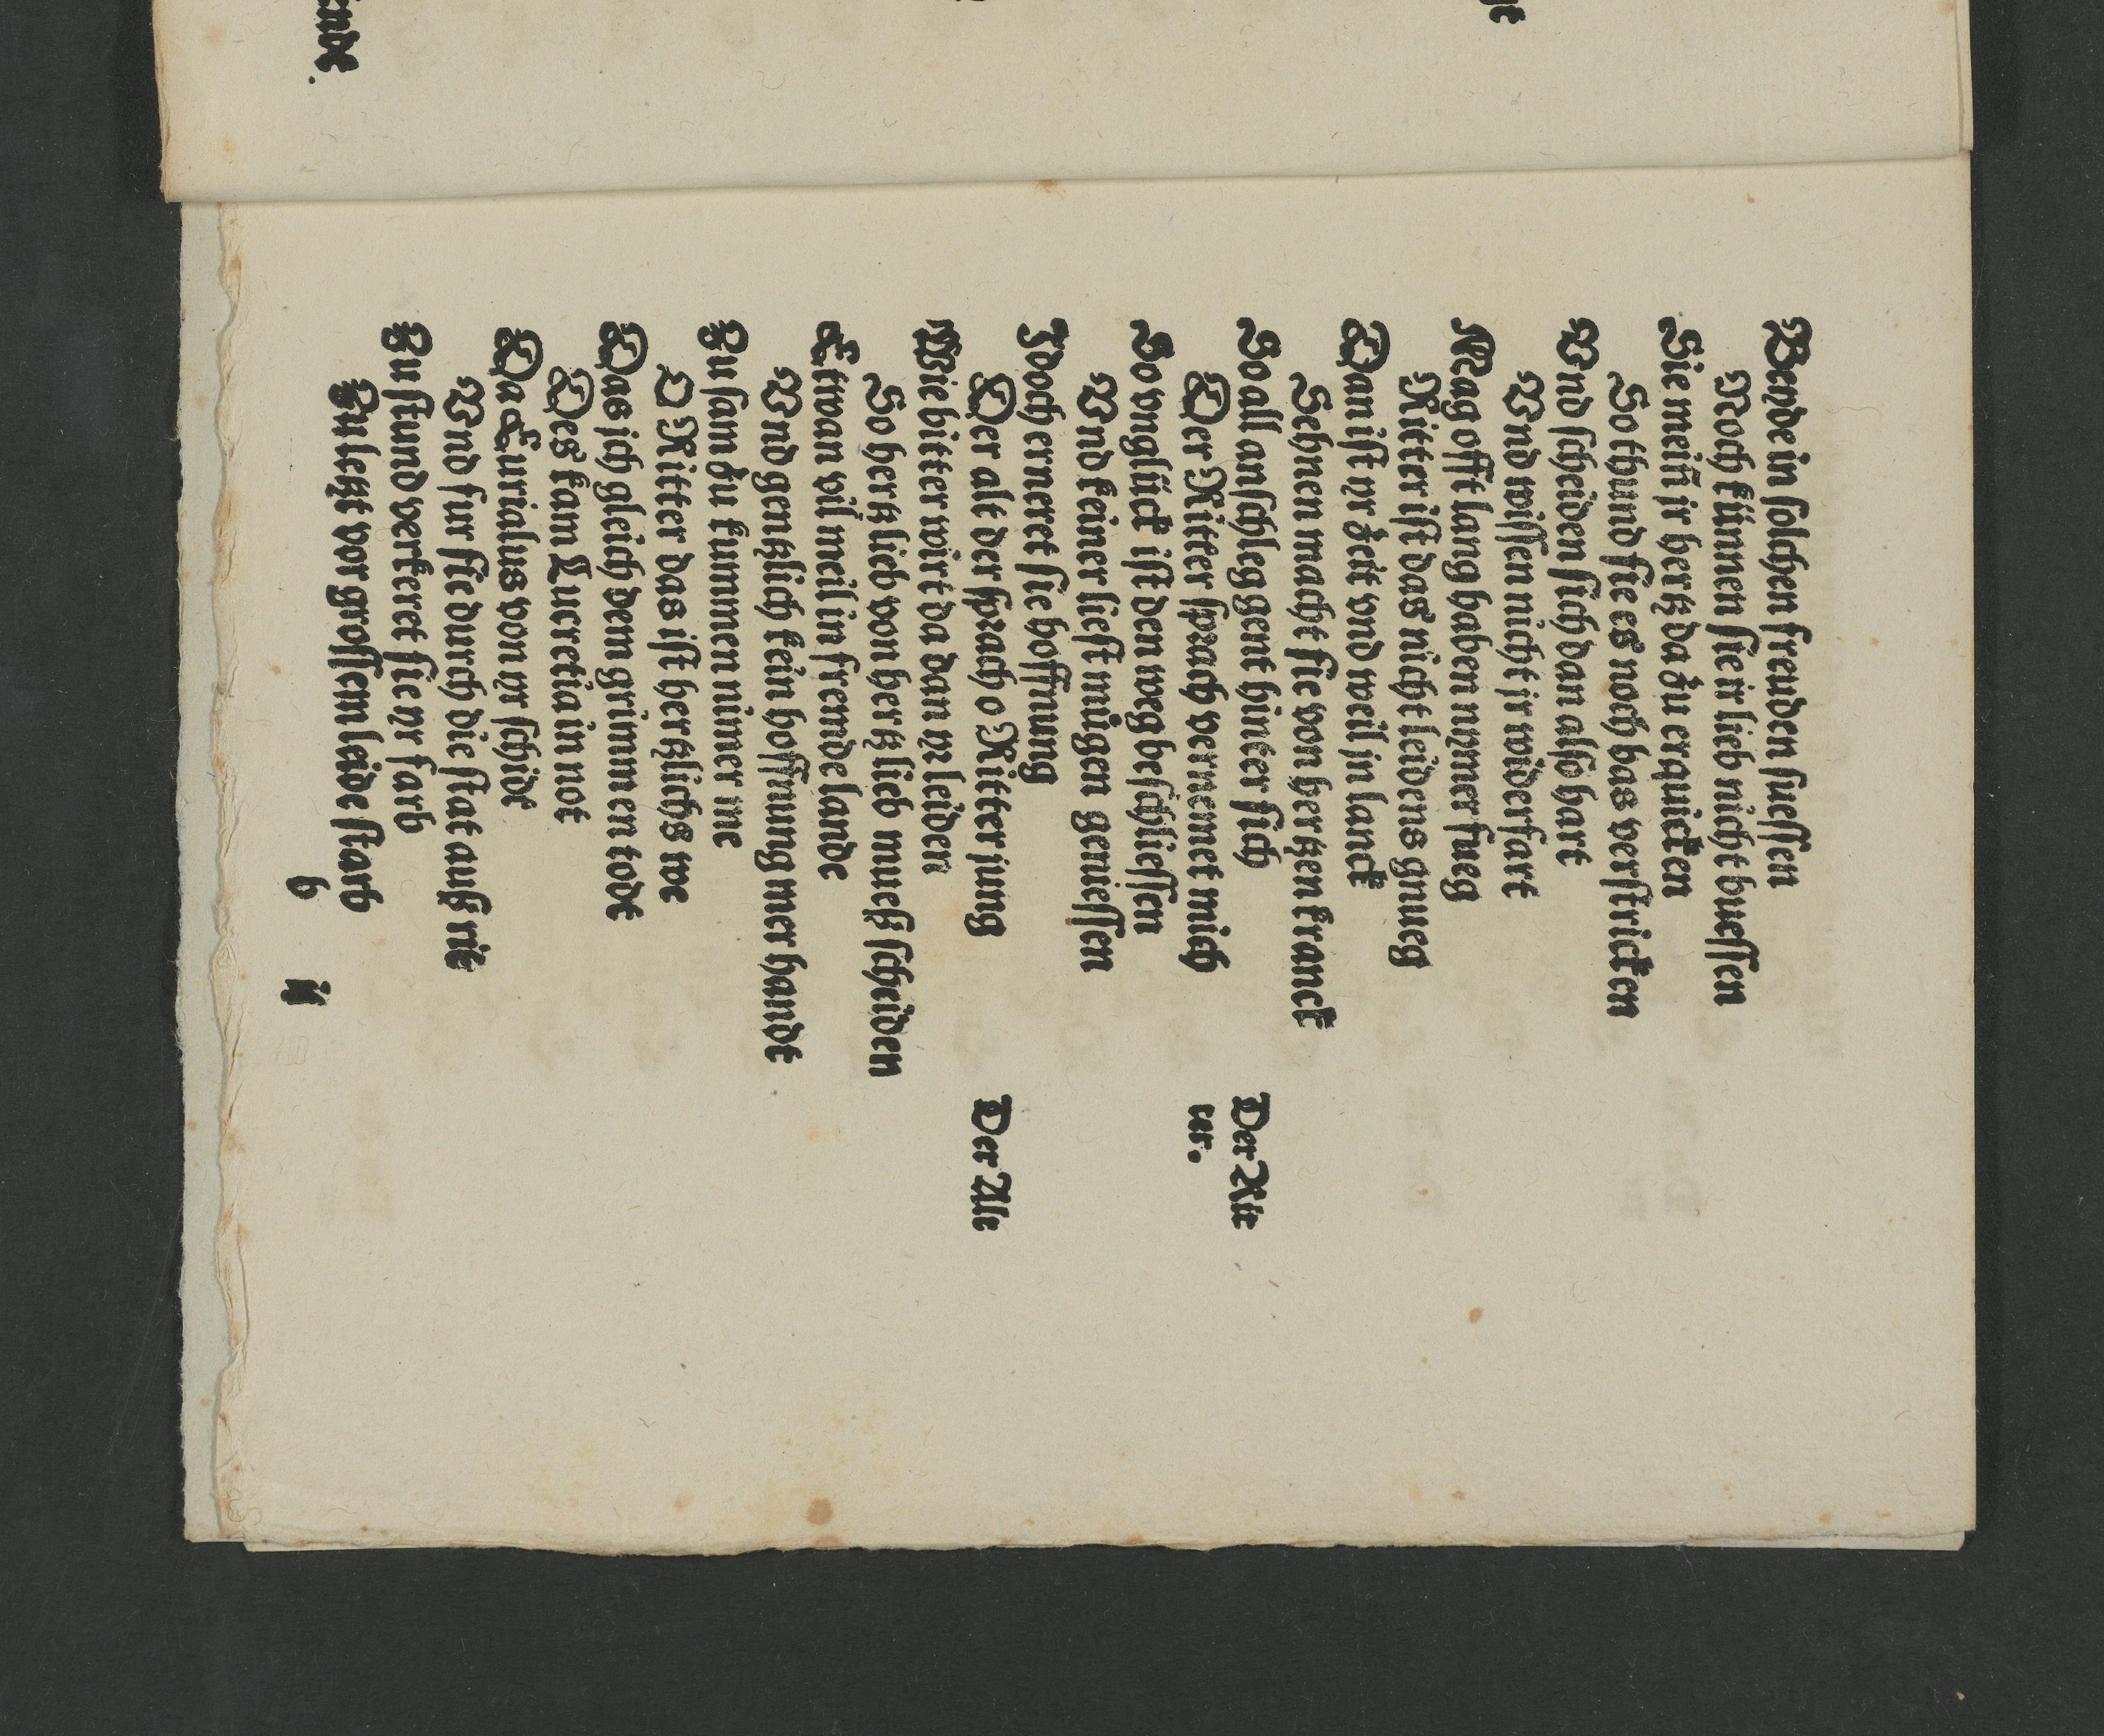 Beyde in solchen freuden suessen
Noch künnen sie ir lieb nicht buessen
Sie mein̄ ir hertz da zu erquicken
So thund sie es noch bas verstricken
Vnd scheiden sich dan also hart
Vnd wissen nicht ir widerfart
Mag offt lang haben nymer fueg
Ritter ist das nicht leidens gnueg
Dan ist yr zeit vnd weil jn lanck
Sehnen macht sie von hertzen kranck
So all anschleg gent hinter sich
Der Ritter sprach vernemet mich
So vnglück ist den weg beschliessen
Vnd keiner liest mügen geniessen
Jdoch erneret sie hoffnung
Der alt der sprach o Ritter jung
Wie bitter wirt da dan yr leiden
So hertzlieb von hertzlieb muess scheiden
Ettwan vil meil in fremde lande
Vnd gentzlich kein hoffnung mer handt
Zusam zu kummen nimer me
O Ritter das ist hertzlichs we
Das sich gleich dem grimmen todt
Des kam Lucretia in not
Da Eurialus von yr schidt
Vnd fur sie durch die stat ausz rit
Zu stund verkeret sie yr farb
Zu letzt vor grossem leide starb
b ij
Der Rit
ter.
Der Alt